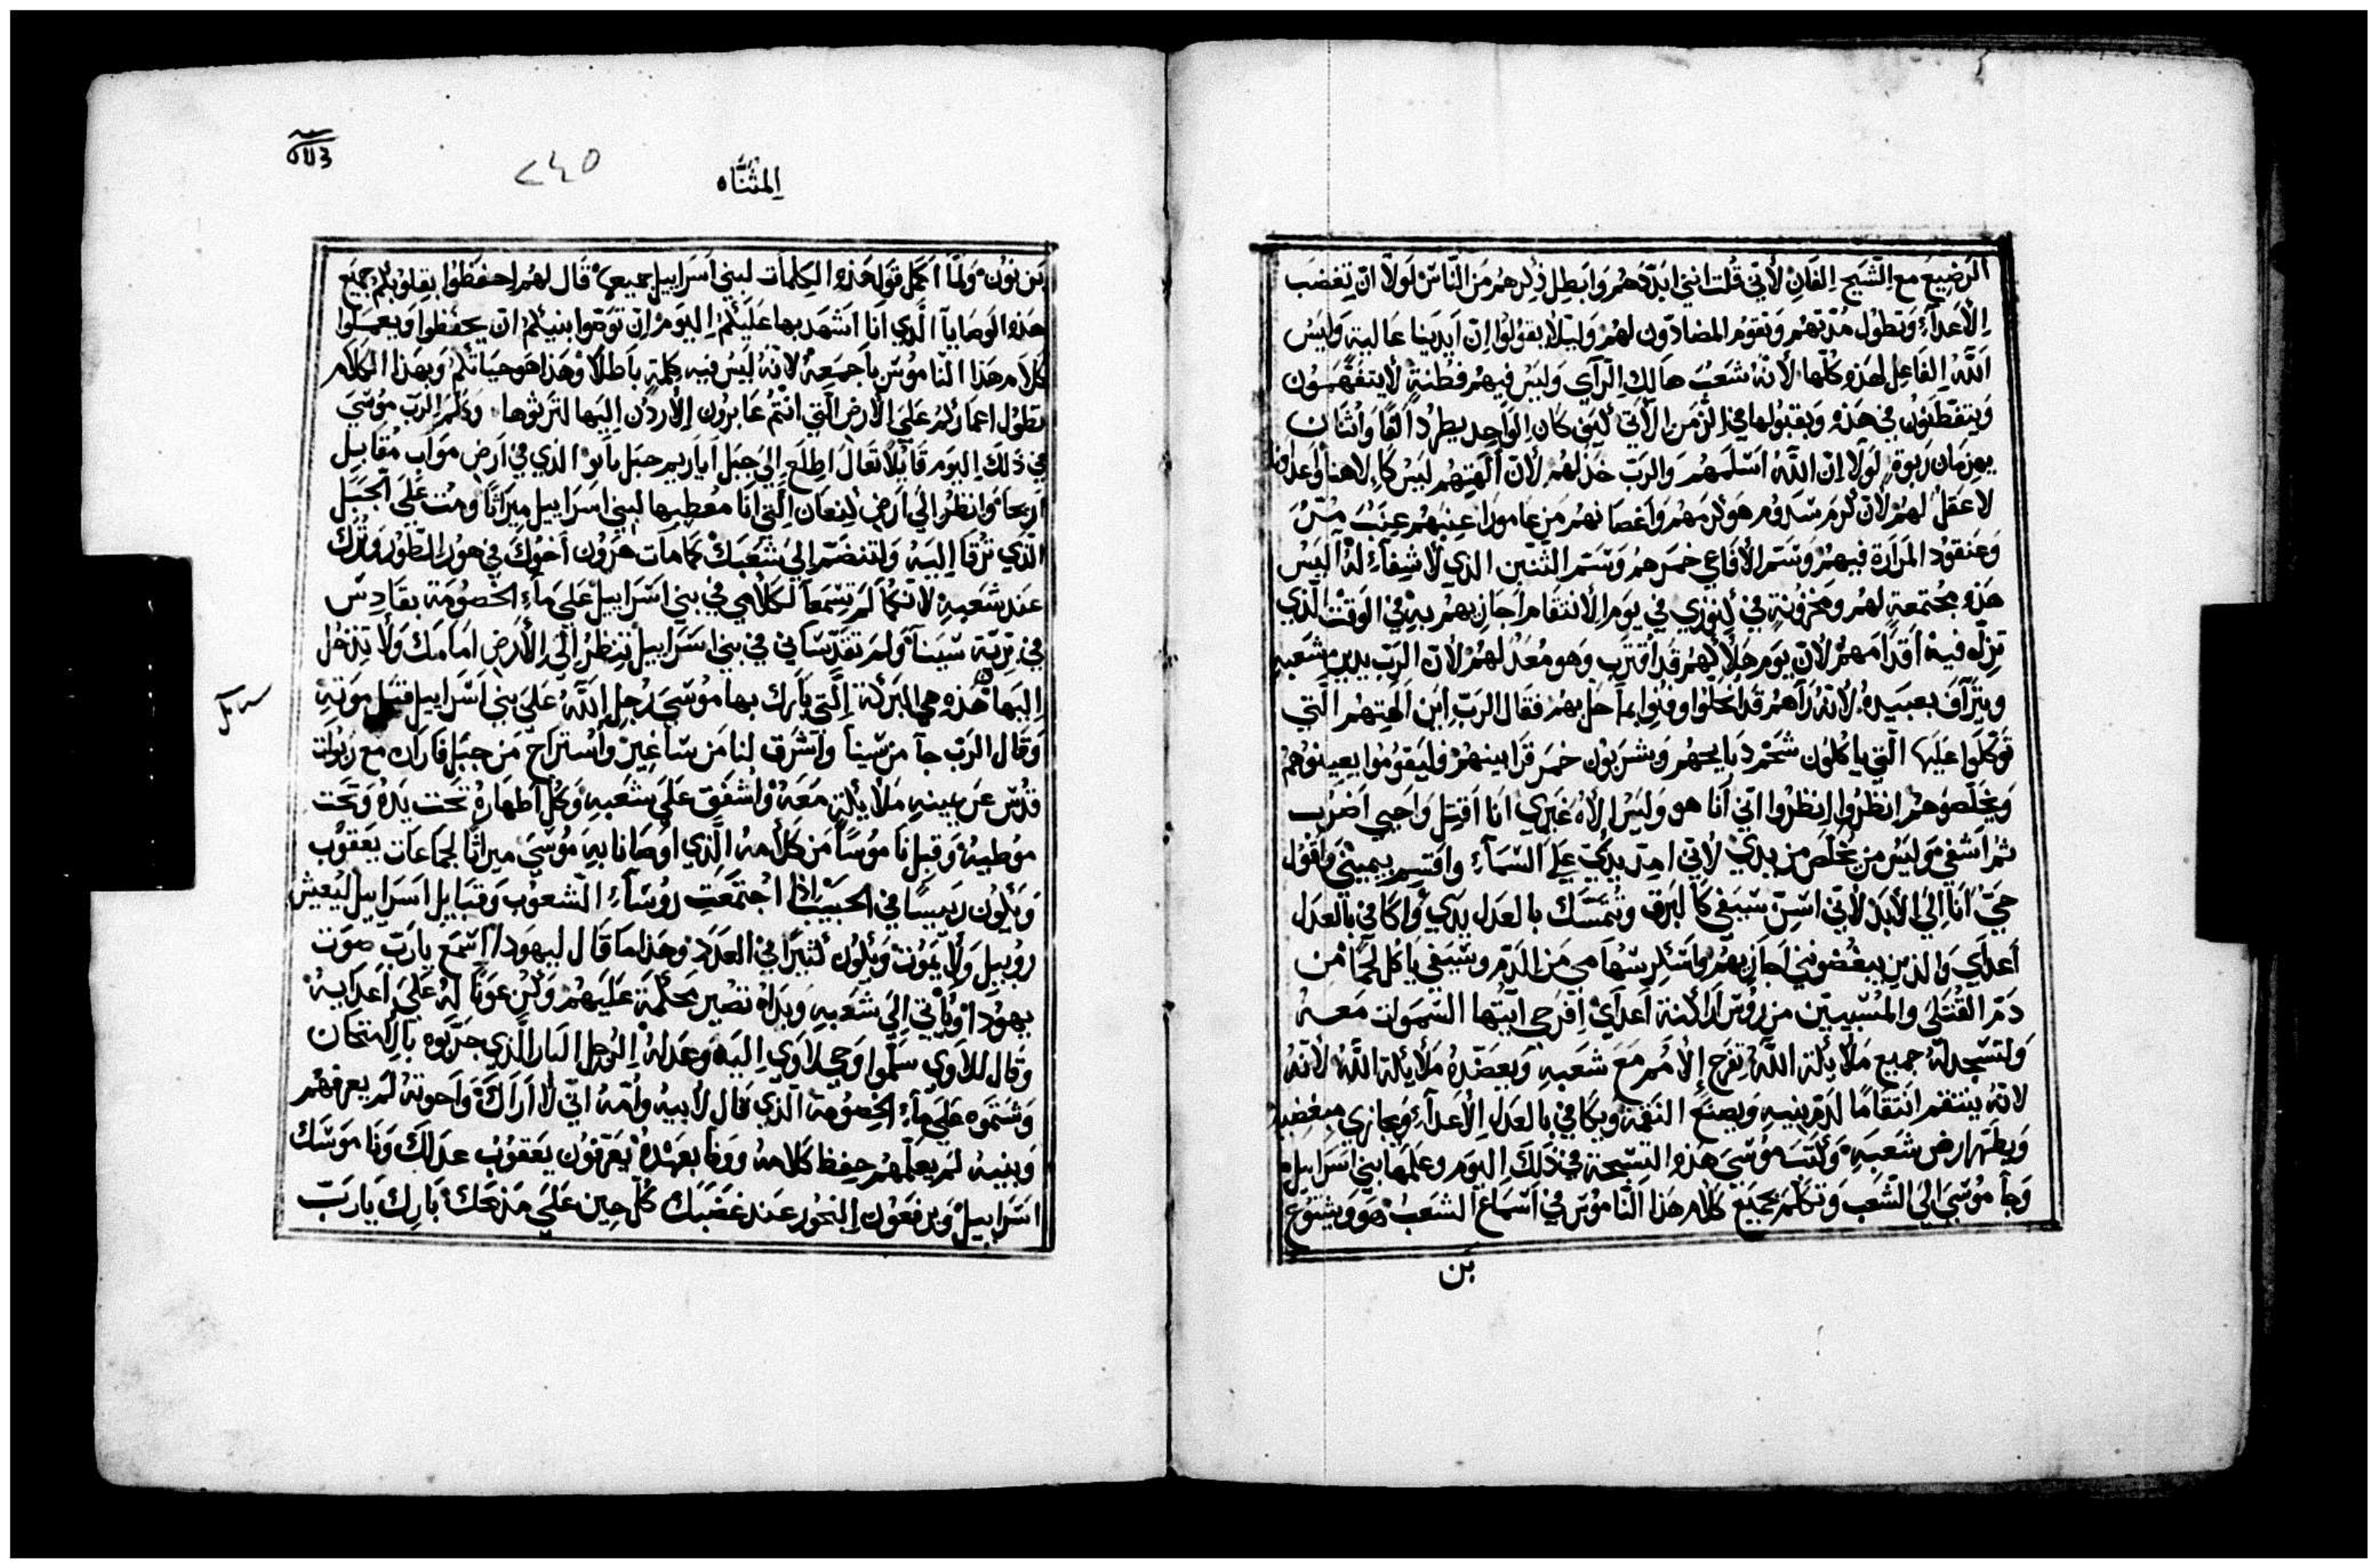 الرضيع مع الشيخ الفان لأني قلت انني ابددهم وابطل ذكرهم من الناس لولا ان تغضب
الأعداء وتطول مدتهم وتقوم المضادون لهم وليلا يقولوا ان ايدينا عالية وليس
الله الفاعل لهذه كلها لأنه شعب هالك الرآي وليس فيهم فطنة لا يتفهمون
ويتفطنون في هذه ويقبلوها في الزمن الآتي كيف كان الواحد يطرد الفا واثنان
يهزمان ربوة لولا ان الله اسلمهم والرب خذلهم لان آلهتهم ليس كالاهنا واعدانا
لا عقل لهم لان كرم سدوم هو كرمهم واغصانهم من عامورا عنبهم عنب مر
وعنقود المرارة فيهم وسم الأفاعي خمرهم وسم التنين الذي لا شفاء له اليس
هذه مجتمعة لهم ومخزونة في كنوزي في يوم الانتقام اجازيهم به في الوقت الذي
تزل فيه اقدامهم لأن يوم هلاكهم قد اقترب وهو معد لهم لأن الرب يدين شعبه
ويترآف بعبيده لأنه رآهم قد انحلوا وفنوا بما حل بهم فقال الرب اين آلهتهم التي
توكلوا عليها التي ياكلون شحم دبايحهم ويشربون خمر قرابينهم فليقوموا يعينوهم
ويخلصوهم انظروا انظروا اني أنا هو وليس إلاه غيري انا اقتل واحيي اضرب
ثم اشفي وليس من يخلص من يدي لاني امد يدي على السماء واقسم بيميني واقول
حي انا الى الأبد لأني اسن سيفي كالبرق وتتمسك بالعدل يدي واكافي بالعدل
اعداي والذين يبغضونني اجازيهم واسكر سهامي من الدم وسيفي ياكل لحما من
دم القتلى والمسبيين من روس اراكنة اعداي افرحي ايتها السموات معه
ولتسجد له جميع ملايكة الله تفرح الأمم مع شعبه وبعضده ملايكة الله لأنه
لانه ينتقم انتقاما لدم بنيه ويصنع النقمة ويكافي بالعدل الأعداء ويجازي مبغضيه
ويطهر ارض شعبه وكتب موسى هذه التسبحة في ذلك اليوم وعلمها بني اسراييل
وجا موسى الى الشعب وتكلم بجميع كلام هذا الناموس في اسماع الشعب هو ويشوع
بن
المثناه
٢٤٥
بن نون ولما اكمل قوله هذه الكلمات لبني اسراييل جميعها قال لهم احفظوا بقلوبكم جميع
هذه الوصايا الذي انا اشهد بها عليكم اليوم ان توصوا بنيكم ان يحفظوا ويعملوا
كلام هذا الناموس باجمعه لانه ليس فيه كلمة باطلا وهذا هو حياتكم وبهذا الكلام
تطول اعماركم على الأرض التي انتم عابرون الأردن اليها لترثوها وكلم الرب موسى
في ذلك اليوم قايلا تعال اطلع الى جبل اباريم جبل نابو الذي في ارض مواب مقابل
اريحا وانظر الى ارض كنعان التي انا معطيها لبني اسراييل ميراثا ومت على الجبل
الذي ترقا اليه ولتنضم الى شعبك كما مات هرون اخوك في هور الطور وترك
عند شعبه لانكما لم تسمعا لكلامي في بني اسراييل على ماء الخصومة بقادس
في برية سينا ولم تقدساني في بني اسراييل تنظر الى الأرض امامك ولا تدخل
اليها هذه هي البركة التي بارك بها موسى رجل الله على بني اسراييل قبل موته
وقال الرب جآ من سينا واشرق لنا من ساغير واستراح من جبل فاران مع ربوات
قدس عن يمينه ملايكة معه واشفق على شعبه وكل اطهاره تحت يده وتحت
موطيه وقبلنا موسا من كلامه الذي اوصانا به موسى ميراثا لجماعات يعقوب
ويكون رييسا في الحبيب اذا اجتمعت روساء الشعوب وقبايل اسراييل ليعيش
روبيل ولا يموت ويكون كثيرا في العدد وهذا ما قال ليهودا اسمع يارب صوت
يهودا وياتي الى شعبه ويداه تصير محكمة عليهم وكن عونا له على اعدايه
وقال للاوي سلموا وحي لاوي اليه وعدله الرجل البار الذي جربوه بالامتحان
وشتموه على ماء الخصومة الذي قال لابيه وامه اني لا اراك واخوته لم يعرفهم
وبنيه لم يعلمهم حفظ كلامه ووفا بعهده يعرفون يعقوب عدلك وناموسك
اسراييل ويرفعون البخور عند غضبك كل حين على مذبحك بارك يارب